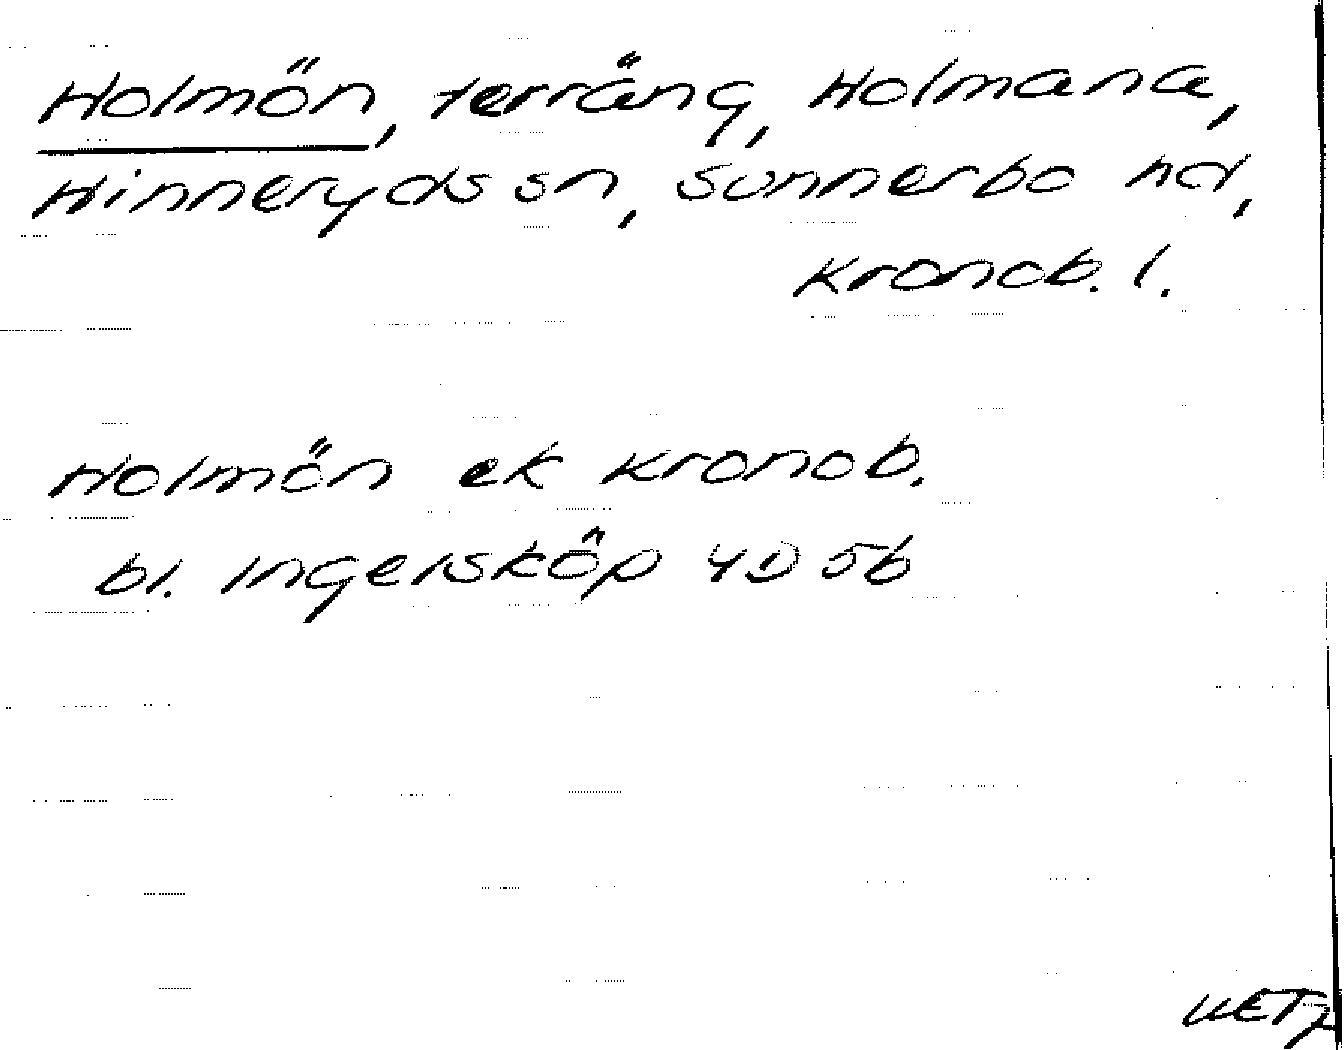 Holmön, terräng, Holmana,
Hinneryds sn, Sunnerbo hd,
Kronob. l.
Holmön ek Kronob.
bl. Ingelsköp 4D 5b